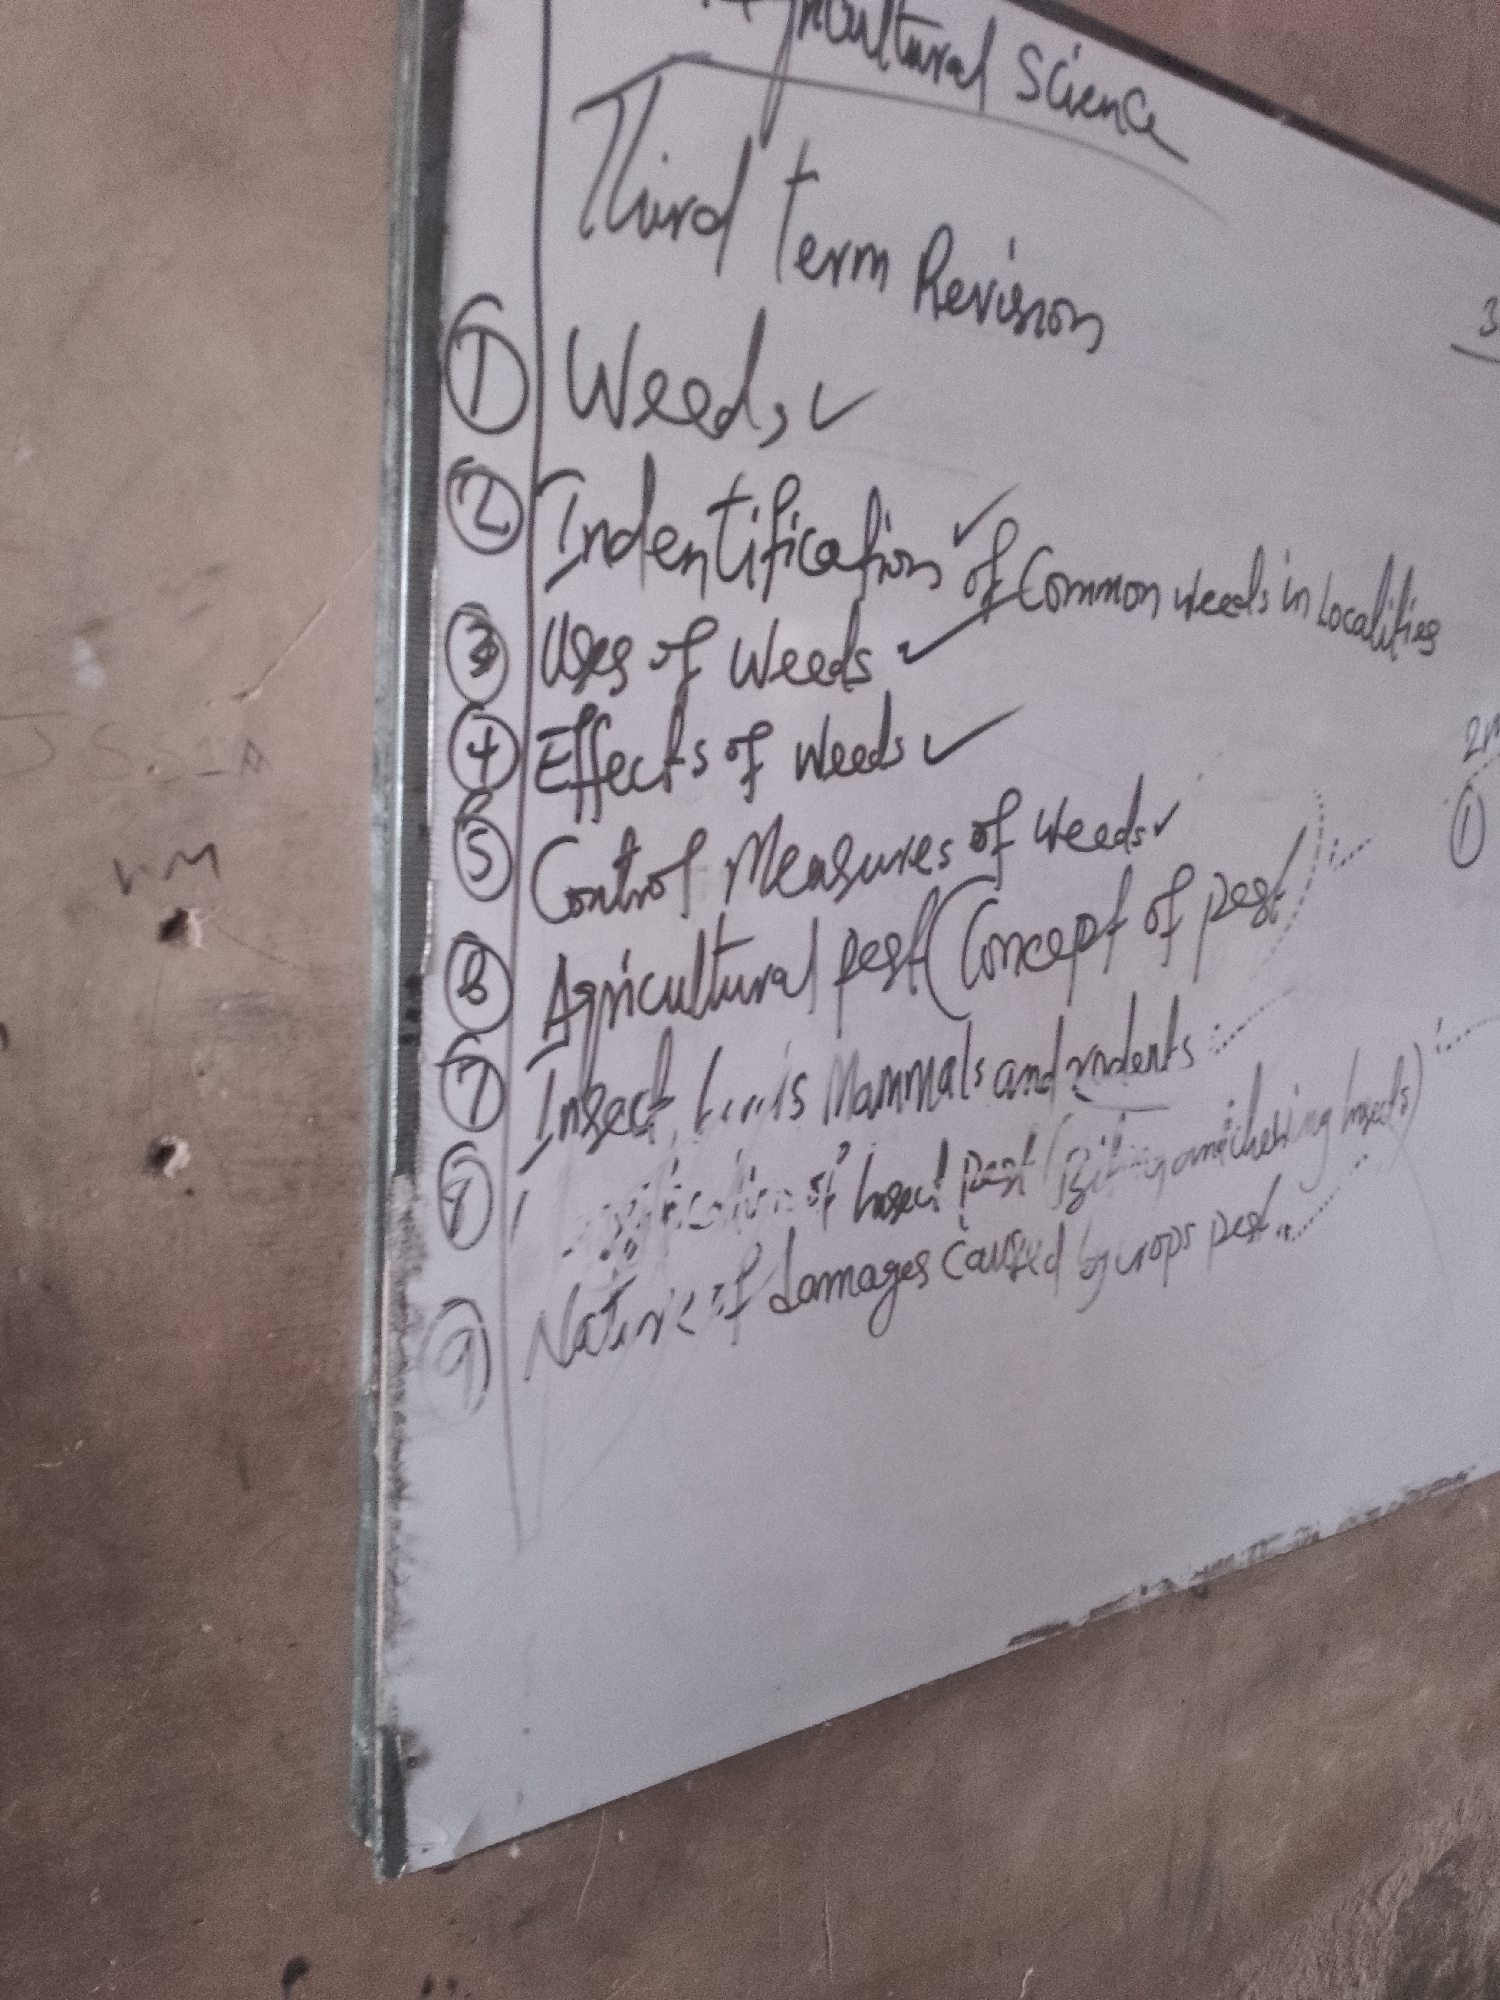 Agricultural Science
Third Term Revision
① Weeds ✓
② Indentification ✓ of Common weeds in Localities
③ Uses of Weeds ✓
④ Effects of weeds ✓
⑤ Control Measures of weeds ✓
⑥ Agricultural pest (Concept of pest)
⑦ Insect, Mammals and rodents
⑧ of Insect pest (Biting and chewing Insects)
⑨ Nature of damages caused by crops pest
3
2
①
JSS1A